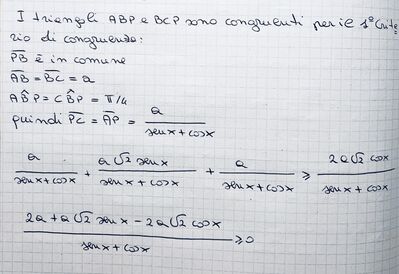 I triangoli ABP e BCP sono congruenti per il 1° Crite
rio di congruenza:
P̅B̅ è in comune
A̅B̅ = B̅C̅ = a
AB̂P = CB̂P = π/4
quindi P̅C̅ = A̅P̅ = a / (senx + cosx)
a / (senx + cosx) + a√2 senx / (senx + cosx) + a / (senx + cosx) ≥ 2a√2 cosx / (senx + cosx)
(2a + a√2 senx - 2a√2 cosx) / (senx + cosx) ≥ 0